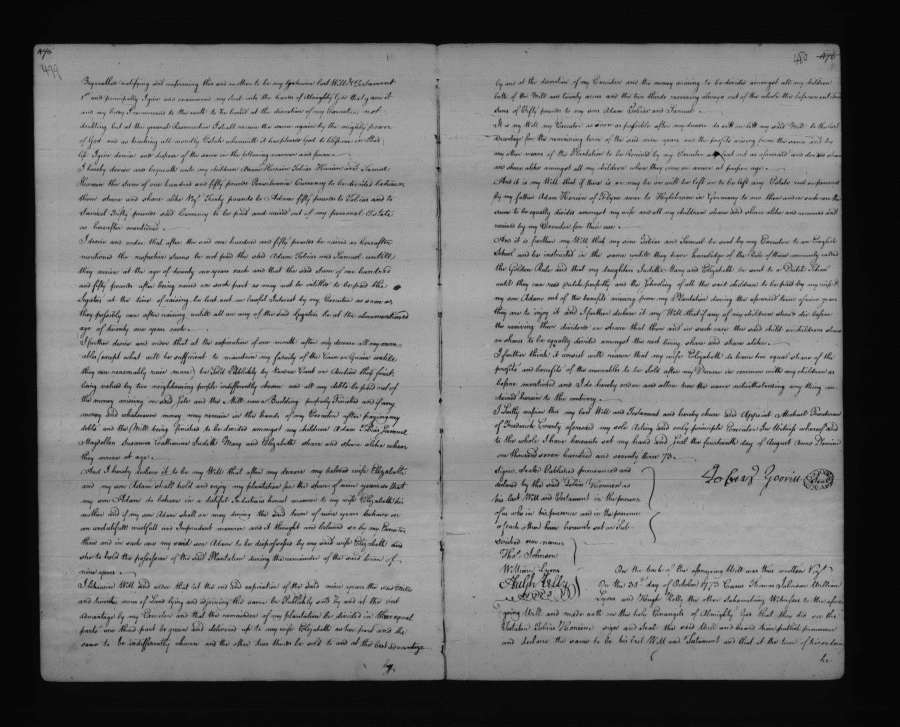 479
Bequeathed ratifying and confirming this and no other to be my last Will & Testament
1st and principally I give and recommend my Soul into the hands of Almighty God that gave it
and my body I recommend to the earth to be buried at the discretion of my Executor not
doubting but at the general Resurrection I shall receive the same again by the mighty power
of God and as touching all worldly Estate wherewith it hath pleased God to bless me in this
life I give devise and dispose of the same in the following manner and form
I hereby devise and bequeath unto my children Adam Tobias and Samuel
the Sum of one hundred and fifty pounds Pennsylvania Currency to be divided between
them share and share alike Viz. pounds to Adam fifty pounds to Tobias and to
Samuel Fifty pounds said Currency to be paid and raised out of my personal Estate
as hereafter mentioned
I desire and order that after the said one hundred and fifty pounds be raised as hereafter
mentioned the respective Sums to not paid the said Adam Tobias and Samuel untill
they arrive at the age of twenty one years each and that the said Sum of one hundred
and fifty pounds after being raised or such part as may not be to be paid the
Legatees at the time of raising be lent out on lawful Interest by my Executor as soon as
they possibly can after raising untill all or any of the said Legatees be at the abovementioned
age of twenty one years each
I further desire and order that at the expiration of one month after my decease all my move-
ables except what will be sufficient to maintain my family of the Cows or Grain untill
they can reasonably raise more) be Sold Publickly by Vendue Cant or Auction they first
being valued by two neighbouring people indifferently chosen and all my debts be paid out of
the money arising on said Sale and the Mill now a Building properly finished and if any
money and whatsoever money may remain in the hands of my Executor after paying my
debts and the Mill being finished to be divided amongst my children Adam Tobias Samuel
Susanna Catharina Mary and Elizabeth share and share alike when
they arrive at age
And I hereby declare it to be my Will that after my decease my beloved wife Elizabeth
and my son Adam shall hold and enjoy my plantation for the space of nine years so that
my son Adam do behave in a dutiful Industrious honest manner to my wife Elizabeth his
mother and if my son Adam shall or may during the said term of nine years behave in
an undutifull and Imprudent manner and it thought and believed so by my Executor
then and in such case my said son Adam to be dispossessed by my said wife Elizabeth and
she to hold the possession of the said Plantation during the remainder of the said term of
nine years
I likewise Will and order that at the said expiration of the said nine years the said Mill
and acres of Land lying and adjoining the same be Publickly sold by and at the best
advantage by my Executor and that the remainder of my plantation be divided in three equal
parts one third part be given and delivered up to my wife Elizabeth as her part and the
same to be indifferently chosen and the other two thirds be sold to and at the best advantage
by
480
by and at the discretion of my Executor and the money arising to be divided amongst all my children
both of the Mill and twenty acres and the two thirds reserving always out of the whole the before mentioned
sum of Fifty pounds to my son Adam Tobias and Samuel
It is my Will my Executor as soon as possible after my decease do sett or lett my said Mill to the best
advantage for the remaining term of the said nine years and the profits arising from the same and for
my other moves of the Plantation to be Received by my Executor and put out as aforesaid and divided share
and share alike amongst all my children when they come or arrive at proper age
And it is my Will that if there is or may be or will be left or to be left any Estate real or personal
by my father Adam in Germany to me then and in such case the
same to be equally divided amongst my wife and all my children share and share alike and recovered and
received by my Executor for their use
And it is further my Will that my son Tobias and Samuel be send by my Executor to an English
School and be instructed in the same untill they have knowledge of the Rule of three commonly called
the Golden Rule and that my daughters Mary and Elizabeth be sent to a Dutch School
until they can read Dutch perfectly and the Schooling of all the said children to be paid by my wife &
my son Adam out of the benefits arising from my Plantation during the aforesaid term of nine years
they are to enjoy it and I further declare it my Will that if any of my children should die before
the receiving their dividend or share that then and in such case the said child or childrens share
or shares to be equally divided amongst the rest being share and share alike
I further think it consist with reason that my wife Elizabeth do have one equal share of the
profits and benefits of the moveable to be Sold after my Decease in common with my children as
before mentioned and I do hereby order and allow her the same notwithstanding any thing con-
tained herein to the contrary
I Lastly confirm this my last Will and Testament and hereby chuse and Appoint Michael
of Frederick County aforesaid my sole Acting and only principle Executor In Witness whereof and
to the whole I have hereunto set my hand and Seal the fourteenth day of August Anno Domini
one thousand seven hundred and seventy three 73.
Signed Sealed Published pronounced and
declared by the said Tobias as
his last Will and Testament in the presence
of us who in his presence and in the presence
of each other have hereunto set or Sub-
scribed our names
Thos. Johnson
William Lyons
On the back of the aforegoing Will was thus written Viz.
On the 30th day of October 1773 Came Thomas Johnson William
Lyons and Hugh Kelly the three Subscribing Witnesses to the afore
going Will and made oath on the holy Evangels of Almighty God that they did see the
Testator Tobias sign and seal the said Will and heard him publish pronounce
and declare the same to be his last Will and Testament and that at the time of his so doin
he